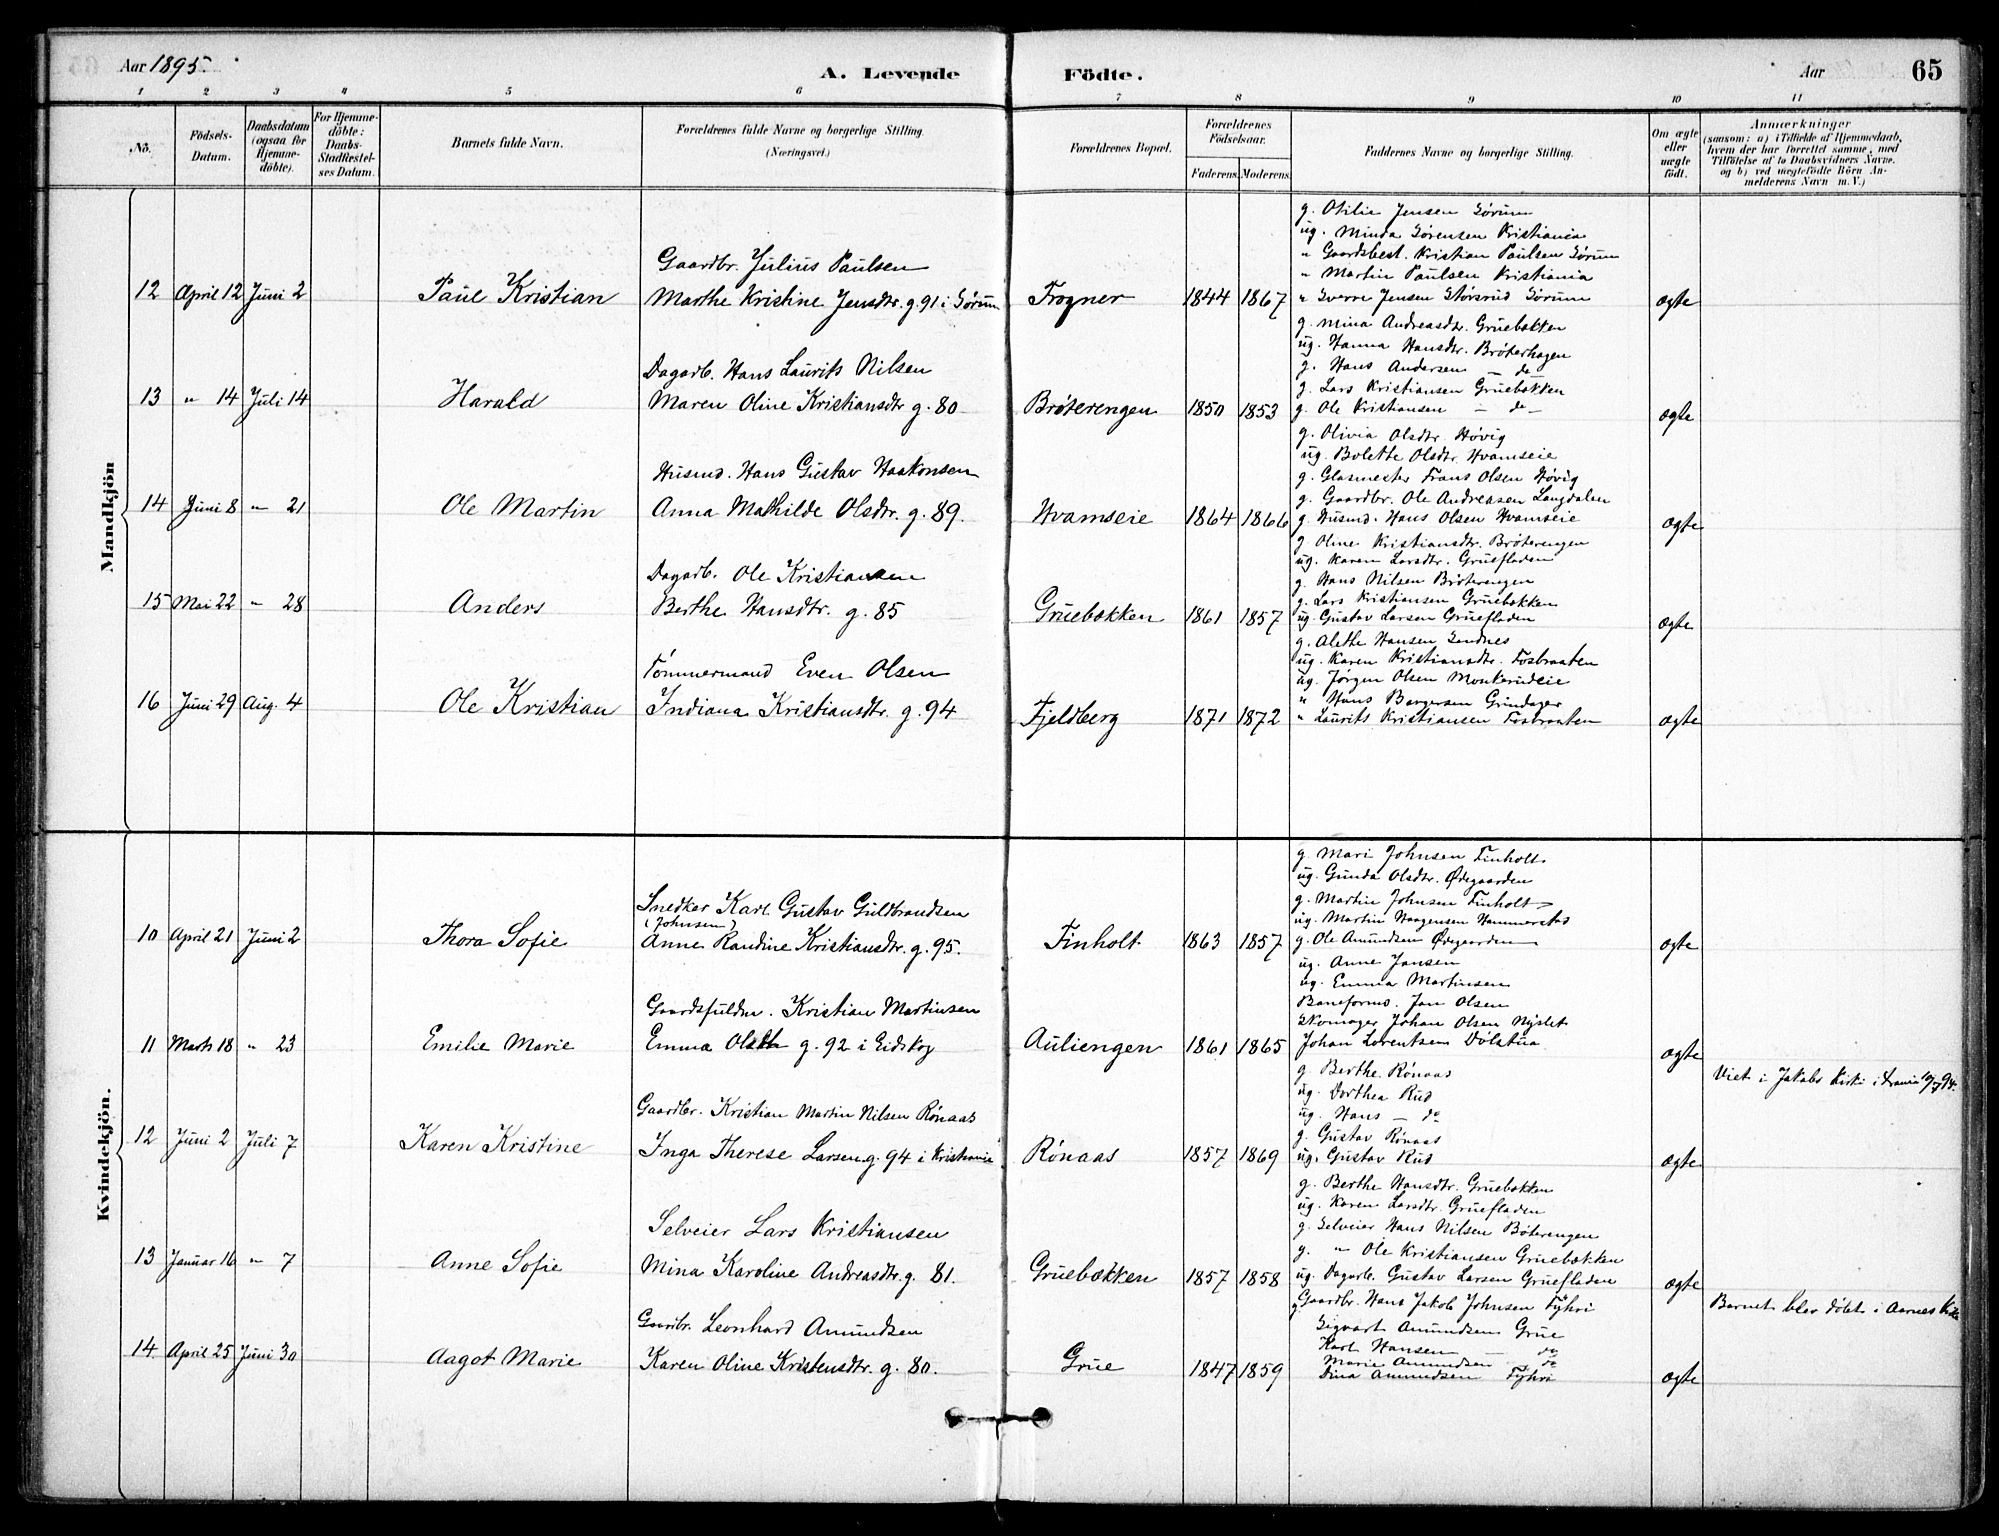 Aar 1895.
A. Levende
Födte.
Aar
65
1 2 3 4 5 6 7 8 9 10 11
No.
Födsels-
Datum.
Daabsdatum
(ogsaa for
Hjemme-
döbte).
For Hjemme-
döbte:
Daabs-
Stadfæstel-
ses Datum.
Barnets fulde Navn.
Forældrenes fulde Navne og borgerlige Stilling.
(Næringsvei.)
Forældrenes Bopæl.
Forældrenes
Födselsaar.
Faderens. Moderens.
Faddernes Navne og borgerlige Stilling.
Om ægte
eller
uægte
födt.
Anmærkninger
(saasom: a) i Tilfælde af Hjemmedaab,
hvem der har forrettet samme, med
Tilföielse af to Daabsvidners Navne.
og b) ved uægtefödte Börn An-
melderens Navn m. V.)
Mandkjön
12 April 12 Juni 2
Paul Kristian
Gaardbr. Julius Paulsen
Marthe Kristine Jensdtr. g. 91 i Sørum
Frogner
1844 1867
g. Otilie Jensen Sørum
ug. Minda Sørensen Kristiania
" Gaardsbest. Kristian Paulsen Sørum
" Martin Paulsen Kristiania
" Sverre Jensen Størsrud Sørum
ægte
13 " 14 Juli 14
Harald
Dagarb. Hans Laurits Nilsen
Maren Oline Kristiansdtr g. 80
Brøterengen
1850 1853
g. Mina Andreasdtr. Gruebækken
ug. Hanna Hansdtr. Brøterhagen
g. Hans Andersen - do -
g. Lars Kristiansen Gruebækken
g. Ole Kristiansen - do -
ægte
14 Juni 8 " 21
Ole Martin
Husmd. Hans Gustav Haakonsen
Anna Mathilde Olsdtr. g. 89.
Hvamseie
1864 1866
g. Olivia Olsdtr. Høvig
ug. Bolette Olsdtr. Hvamseie
g. Glasmester Frans Olsen Høvig
g. Gaardbr. Ole Andreasen Langdalen
g. Husmd. Hans Olsen Hvamseie
ægte
15 Mai 22 " 28
Anders
Dagarb. Ole Kristiansen
Berthe Hansdtr. g. 85
Gruebækken
1861 1857
g. Oline Kristiansdtr. Brøterengen
ug. Karen Larsdtr. Gruefladen
g. Hans Nilsen Brøterengen
g. Lars Kristiansen Gruebækken
ug. Gustav Larsen Gruefladen
ægte
16 Juni 29 Aug. 4
Ole Kristian
Tømmermand Even Olsen
Indiana Kristiansdtr. g. 94
Fjeldberg
1871 1872
g. Alethe Hansen Sendnes
ug. Karen Kristiansdtr. Fosbraaten
ug. Jørgen Olsen Monkerudeie
" Hans Borgersen Grindager
" Laurits Kristiansen Fosbraaten
ægte
Kvindekjön.
10 April 21 Juni 2
Thora Sofie
Snedker Karl Gustav Guldbrandsen
(Johnsen)
Anne Randine Kristiansdtr. g. 95.
Finholt
1863 1857
g. Mari Johnsen Finholt
ug. Gunda Olsdtr. Ødegaarden
g. Martin Johnsen Finholt
ug. Martin Haagensen Hammerstad
g. Ole Amundsen Ødegaarden
ægte
11 Marts 18 " 23
Emilie Marie
Gaardsfuldm. Kristian Martinsen
Emma Olsdtr g. 92 i Eidskog
Auliengen
1861 1865
ug. Anne Jansen
ug. Emma Martinsen
Baneform. Jan Olsen
Skomager Johan Olsen Nyslet
Johan Lorentsen Dølstua
ægte
12 Juni 2 Juli 7
Karen Kristine
Gaardbr. Kristian Martin Nilsen Rønaas
Inga Therese Larsen g. 94 i Kristiania
Rønaas
1857 1869
g. Berthe Rønaas
ug. Dorthea Rud
ug. Hans - do
g. Gustav Rønaas
ug. Gustav Rud
ægte
Viet i Jakobs Kirke i Krania 10/7 94.
13 Januar 16 " 7
Anne Sofie
Selveier Lars Kristiansen
Mina Karoline Andreasdtr. g. 81.
Gruebækken
1857 1858
g. Berthe Hansdtr. Gruebækken
ug. Karen Larsdtr. Gruefladen
g. Selveier Hans Nilsen Bøterengen
g. " Ole Kristiansen Gruebækken
ug. Dagarb. Gustav Larsen Gruefladen
ægte
14 April 25 Juni 30
Aagot Marie
Gaardbr. Leonhard Amundsen
Karen Oline Kristensdtr. g. 80.
Grue
1847 1859
g Gaardbr. Hans Jakob Johnsen Fyhri
Sigvart Amundsen Grue
Karl Hansen - do
Marie Amundsen - do
Dina Amundsen Fyhri
ægte
Barnet blev døbt i Aarnes Kirke